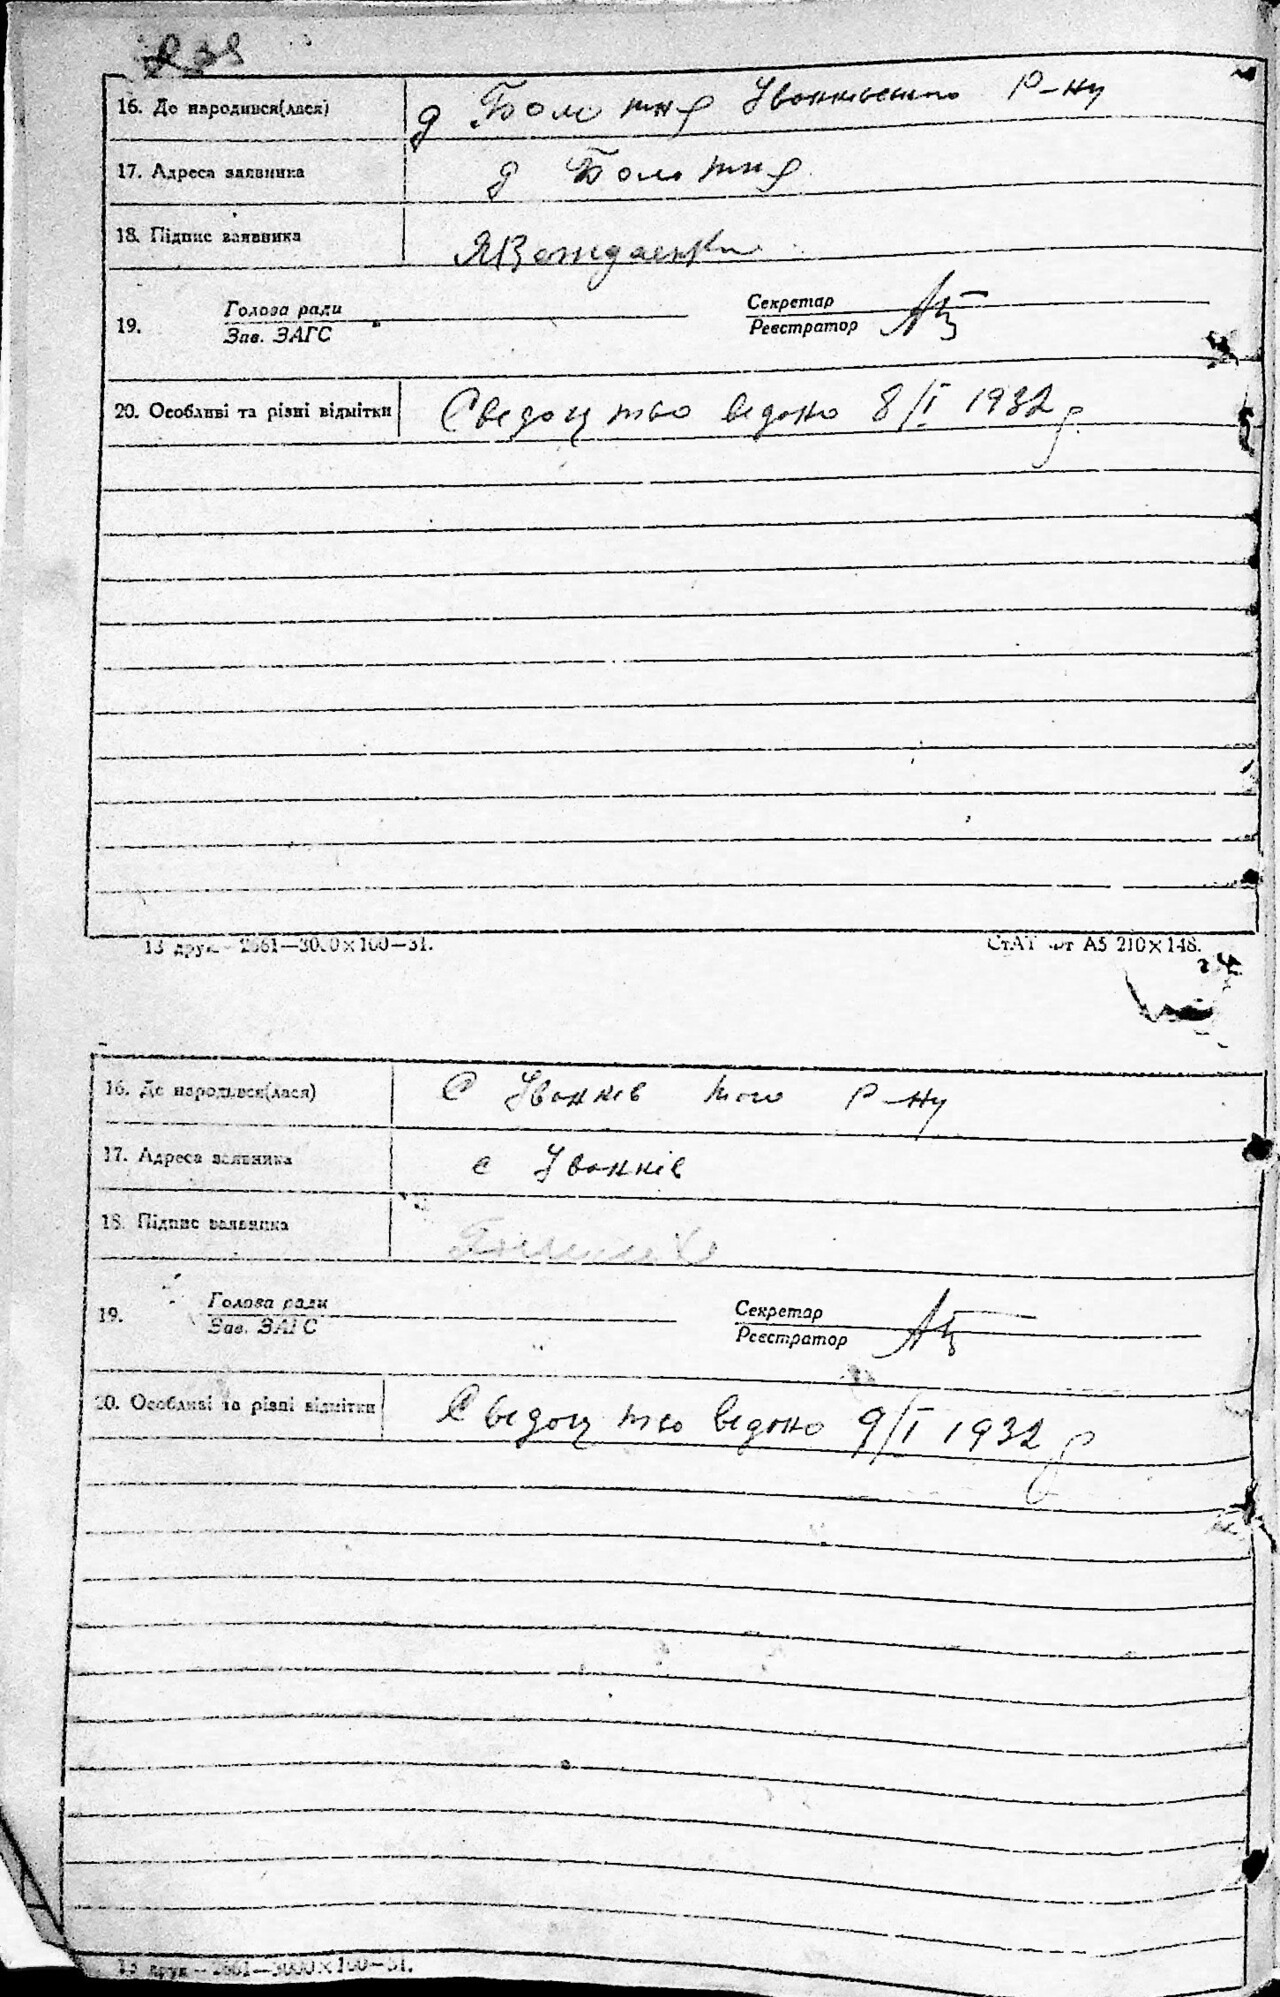 16. Де народився(лася) д Болотня Іванківського р-ну
17. Адреса заявника д Болотня
18. Підпис заявника
19. Голова ради Секретар
Зав. ЗАГС Реєстратор
20. Особливі та різні відмітки Сведоцтво ведоно 8/I 1932 р.
13 друк.—2661—3000×100—31. СтАТ А5 210×148.
16. Де народився(лася) с Іванків того р-ну
17. Адреса заявника с Іванків
18. Підпис заявника
19. Голова ради Секретар
Зав. ЗАГС Реєстратор
20. Особливі та різні відмітки Сведоцтво ведоно 9/I 1932 р
13 друк.—2661—3000×100—31.